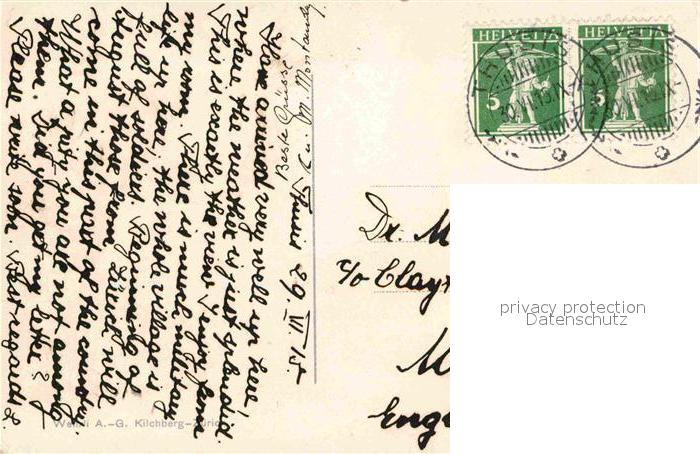 Thusis 29. VII. 15.
Have arrived very well up here!
where the weather is just splendid.
This is exactly the view I enjoy from
my room. There is much military
life up here, the whole village is
full of soldiers. Beginning of
August those from Zürich will
come in this part of the country.
What a pity you are not among
them. Did you get my letter?
Please write soon. Best regards
Beste Grüsse
HELVETIA
5
HELVETIA
5
Dr. M
c/o Clay
M
Eng
Wehrli A.-G. Kilchberg-Zürich
privacy protection
Datenschutz